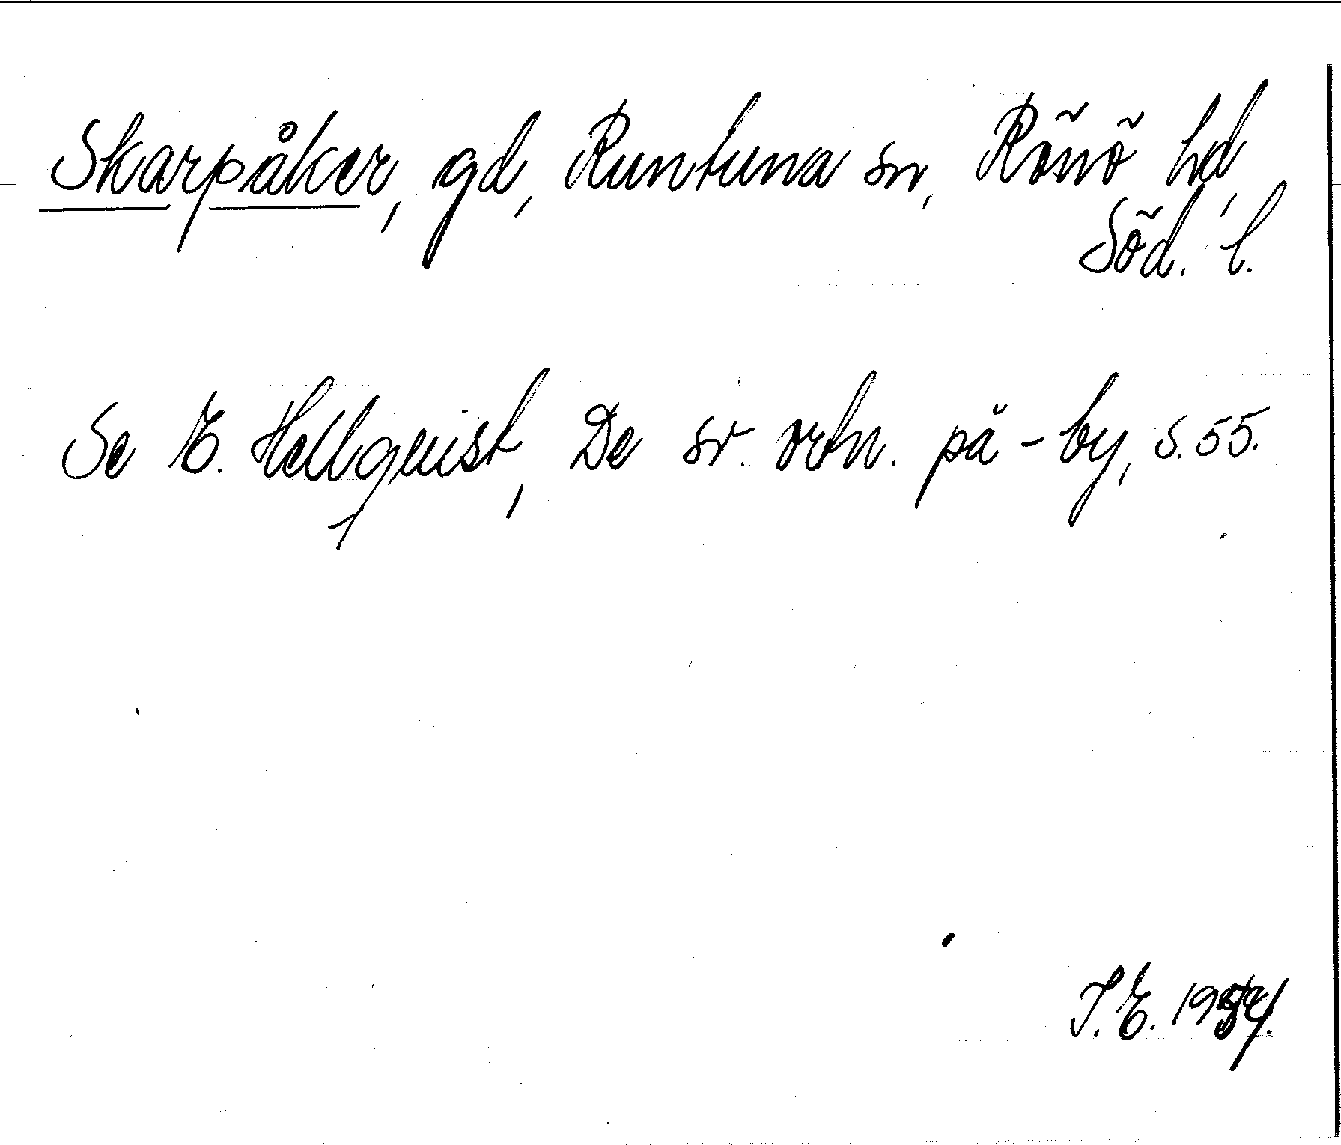 Skarpåker, gd, Runtuna sn, Rönö hd,
Söd. l.
Se E. Hellquist, De sv. ortn. på -by, s. 55.
I. E. 1954.